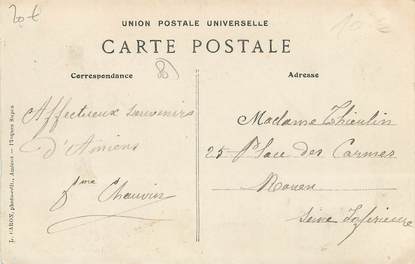 20 €
UNION POSTALE UNIVERSELLE
CARTE POSTALE
Correspondance
80
Adresse
Affectueux souvenirs
d'Amiens
Chauvin
Madame Thieulin
25 Place des Carmes
Rouen
Seine Inférieure
L. CARON, photo-édit., Amiens